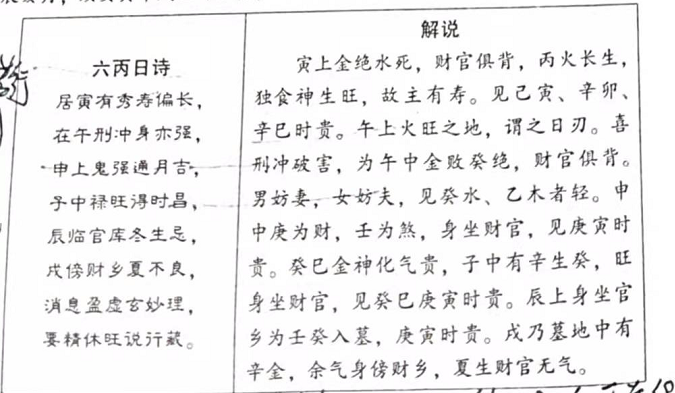 六丙日诗
居寅有秀寿偏长，
在午刑冲身亦强，
申上鬼强通月吉，
子中禄旺得时昌，
辰临官库冬生忌，
戌傍财乡夏不良，
消息盈虚玄妙理，
要精休旺说行藏。
解说
寅上金绝水死，财官俱背，丙火长生，
独食神生旺，故主有寿。见己寅、辛卯、
辛巳时贵。午上火旺之地，谓之日刃。喜
刑冲破害，为午中金败癸绝，财官俱背。
男妨妻，女妨夫，见癸水、乙木者轻。申
中庚为财，壬为煞，身坐财官，见庚寅时
贵。癸巳金神化气贵，子中有辛生癸，旺
身坐财官，见癸巳庚寅时贵。辰上身坐官
乡为壬癸入墓，庚寅时贵。戌乃墓地中有
辛金，余气身傍财乡，夏生财官无气。